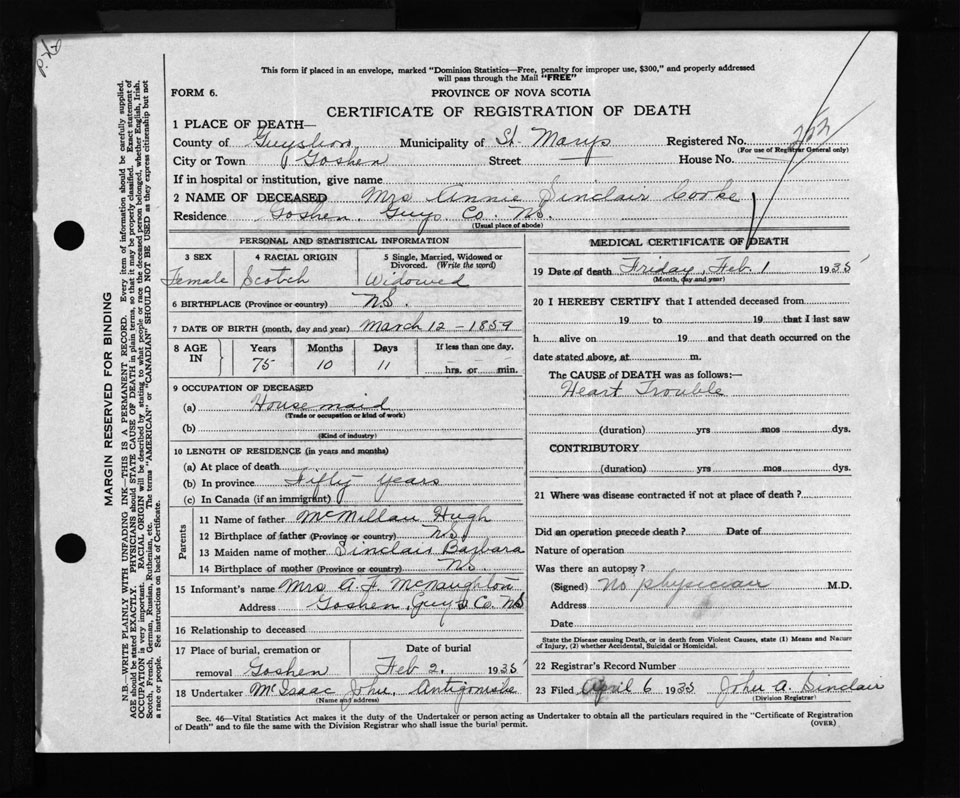 This form if placed in an envelope, marked "Dominion Statistics—Free, penalty for improper use, $300," and properly addressed
will pass through the Mail "FREE"
FORM 6.
PROVINCE OF NOVA SCOTIA
CERTIFICATE OF REGISTRATION OF DEATH
1 PLACE OF DEATH—
County of Guysboro Municipality of St. Marys Registered No.
(For use of Registrar General only)
City or Town Goshen Street — House No.
If in hospital or institution, give name
2 NAME OF DECEASED Mrs Annie Sinclair Cooke
Residence Goshen, Guys Co. N.S.
(Usual place of abode)
PERSONAL AND STATISTICAL INFORMATION
3 SEX 4 RACIAL ORIGIN 5 Single, Married, Widowed or
Divorced. (Write the word)
Female Scotch Widowed
6 BIRTHPLACE (Province or country) N.S.
7 DATE OF BIRTH (month, day and year) March 12 - 1859
8 AGE IN Years Months Days If less than one day,
75 10 11 hrs. or min.
9 OCCUPATION OF DECEASED
(a) Housemaid
(Trade or occupation or kind of work)
(b)
(Kind of industry)
10 LENGTH OF RESIDENCE (in years and months)
(a) At place of death
(b) In province Fifty years
(c) In Canada (if an immigrant)
Parents
11 Name of father McMillan Hugh
12 Birthplace of father (Province or country) N.S.
13 Maiden name of mother Sinclair Barbara
14 Birthplace of mother (Province or country) N.S.
15 Informant's name Mrs A. F. McNaughton
Address Goshen, Guy's Co. N.S
16 Relationship to deceased
17 Place of burial, cremation or Date of burial
removal Goshen Feb 2. 1935
18 Undertaker McIsaac John, Antigonish
(Name and address)
MEDICAL CERTIFICATE OF DEATH
19 Date of death Friday, Feb. 1 1935
(Month, day and year)
20 I HEREBY CERTIFY that I attended deceased from
19 to 19 that I last saw
h alive on 19 and that death occurred on the
date stated above, at m.
The CAUSE of DEATH was as follows:—
Heart Trouble
(duration) yrs mos dys.
CONTRIBUTORY
(duration) yrs mos dys.
21 Where was disease contracted if not at place of death?
Did an operation precede death? Date of
Nature of operation
Was there an autopsy?
(Signed) No physician M.D.
Address
Date
State the Disease causing Death, or in death from Violent Causes, state (1) Means and Nature
of Injury, (2) whether Accidental, Suicidal or Homicidal.
22 Registrar's Record Number
23 Filed April 6 1935 John A. Sinclair
(Division Registrar)
Sec. 46—Vital Statistics Act makes it the duty of the Undertaker or person acting as Undertaker to obtain all the particulars required in the "Certificate of Registration
of Death" and to file the same with the Division Registrar who shall issue the burial permit.
(OVER)
MARGIN RESERVED FOR BINDING
N.B.—WRITE PLAINLY WITH UNFADING INK—THIS IS A PERMANENT RECORD. Every item of information should be carefully supplied.
AGE should be stated EXACTLY. PHYSICIANS should STATE CAUSE OF DEATH in plain terms, so that it may be properly classified. Exact statement of
OCCUPATION is very important. RACIAL ORIGIN will be described by stating to what people or race the deceased person belonged, whether English, Irish,
Scotch, French, German, Russian, Ruthenian, etc. The terms "AMERICAN" or "CANADIAN" SHOULD NOT BE USED as they express citizenship but not
a race or people. See instructions on back of Certificate.